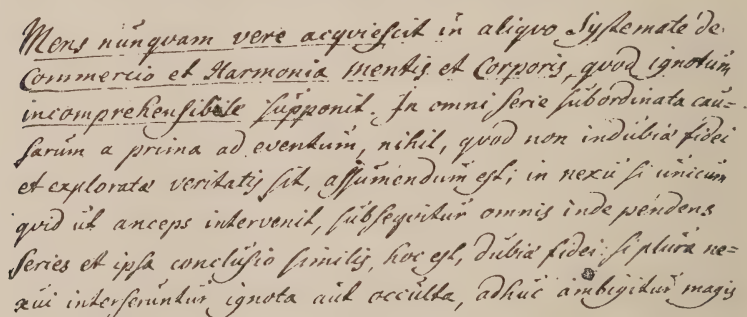 Mens nunquam vere acquiescit in aliquo Systemate de
Commercio et Harmonia Mentis et Corporis, quod ignotum
incomprehensibile supponit. In omni serie subordinata cau=
sarum a prima ad eventum, nihil, quod non indubiæ fidei
et exploratæ veritatis sit, assumendum est; in nexu si unicum
quid ut anceps intervenit, subsequitur omnis inde pendens
series et ipsa conclusio similis, hoc est, dubiæ fidei: si plura ne=
xui interseruntur ignota aut occulta, adhuc ambigitur magis